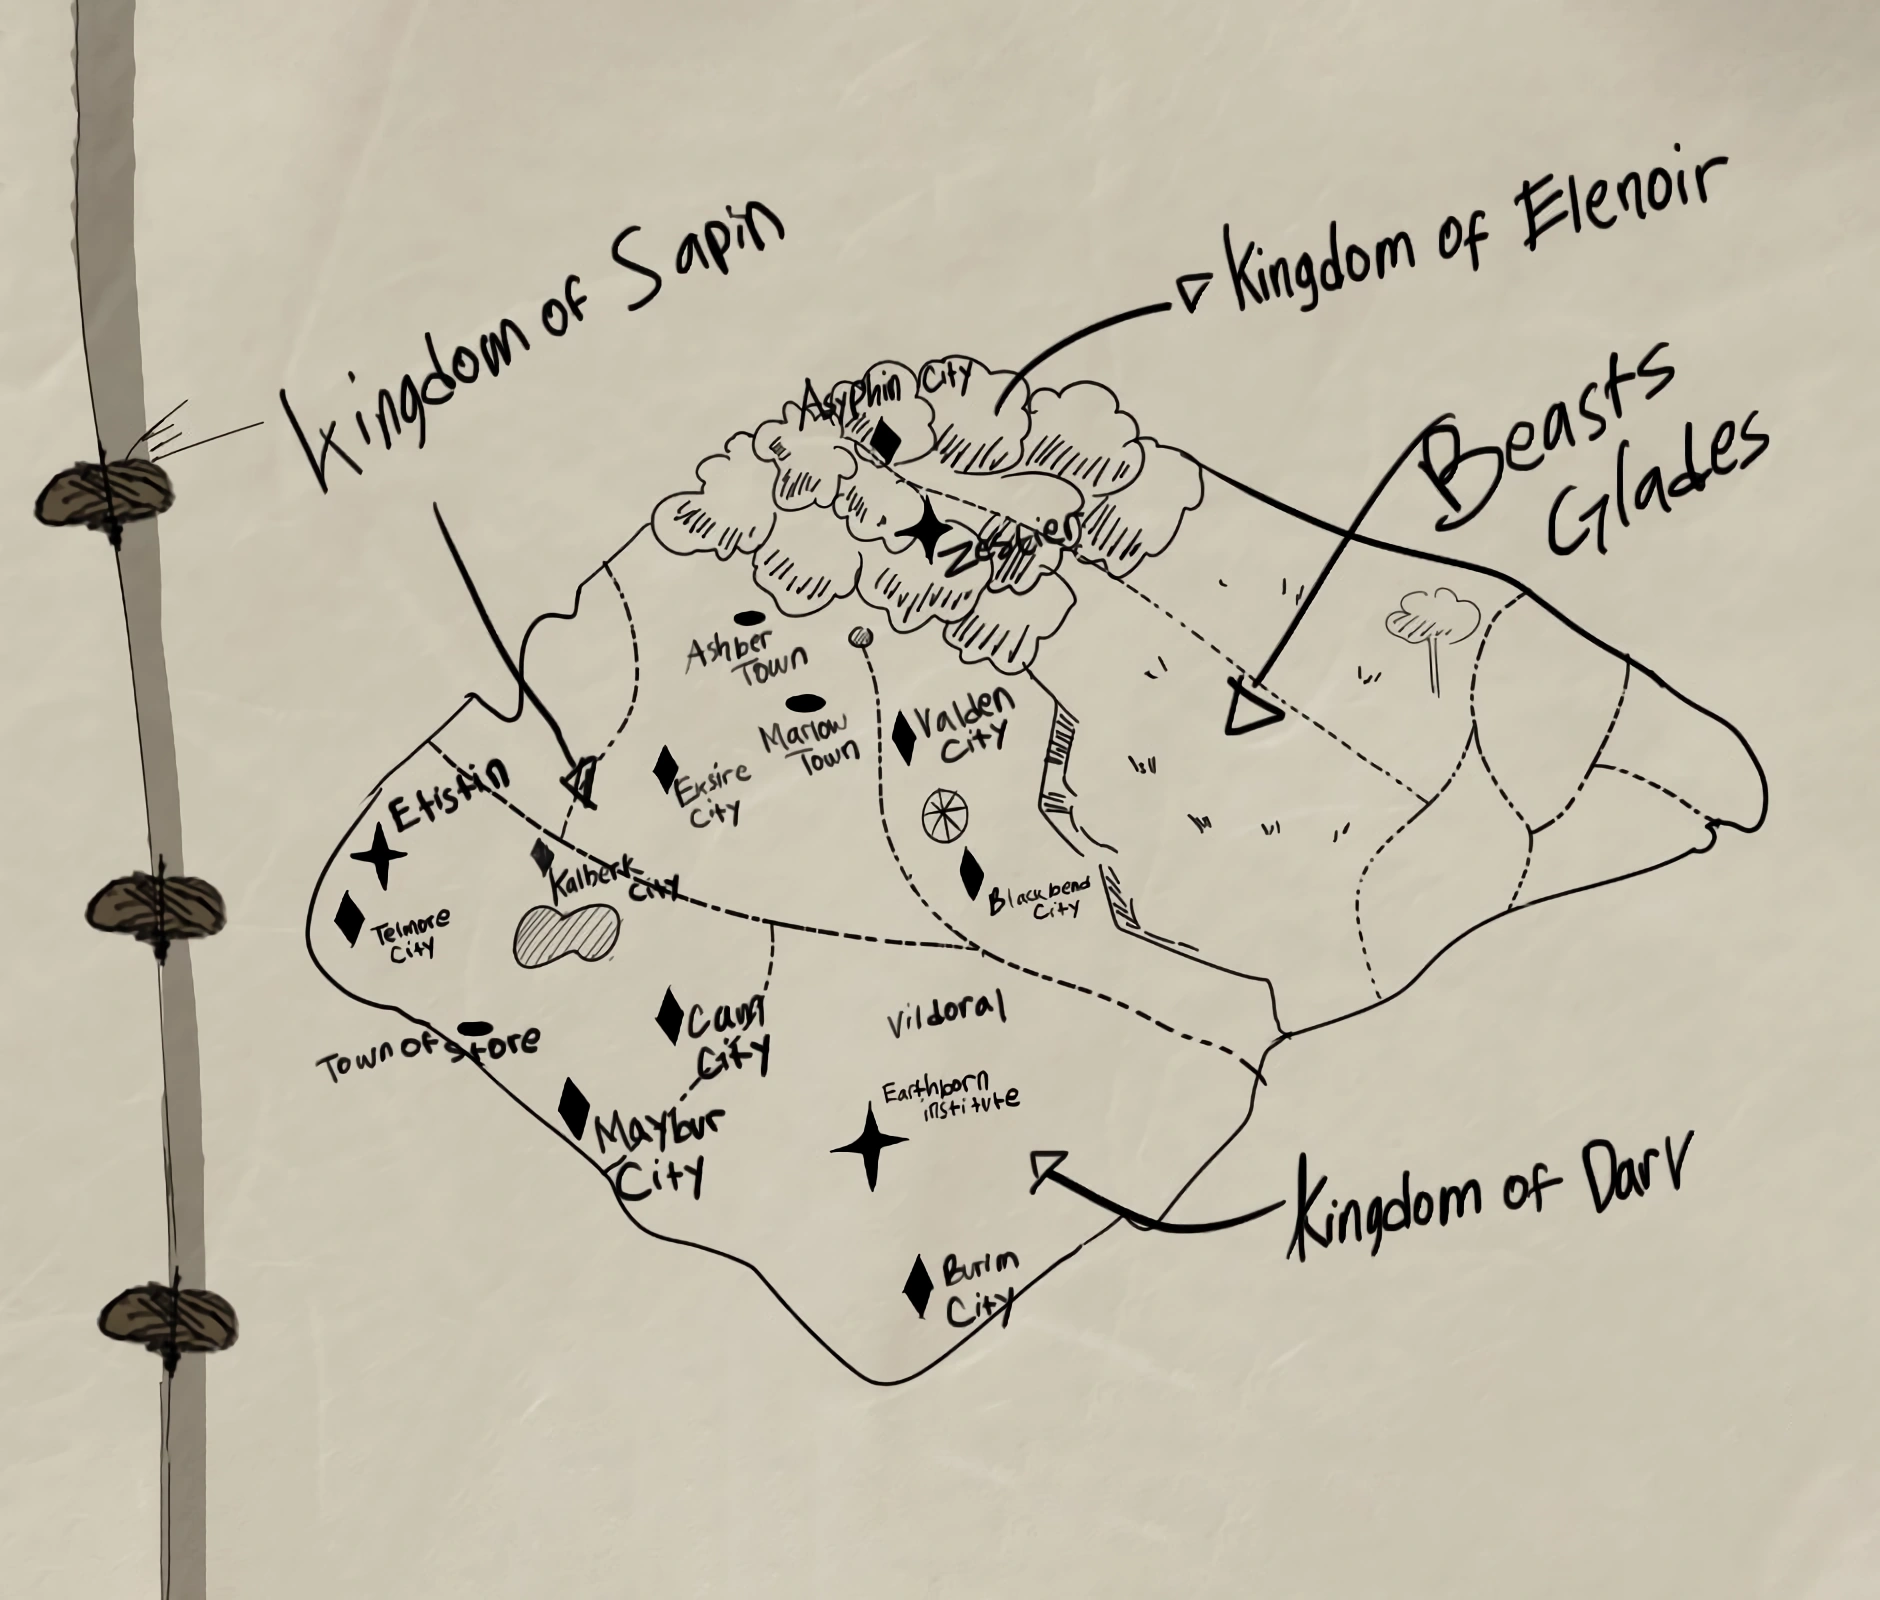 Kingdom of Sapin
Kingdom of Elenoir
Beasts
Glades
Asyphin City
Zestier
Ashber
Town
Marlow
Town
Valden
City
Etistin
Eksire
City
Kalberk
City
Blackbend
City
Telmore
City
Town of Store
City
Vildoral
Earthborn
institute
Maybur
City
Kingdom of Darv
Burim
City